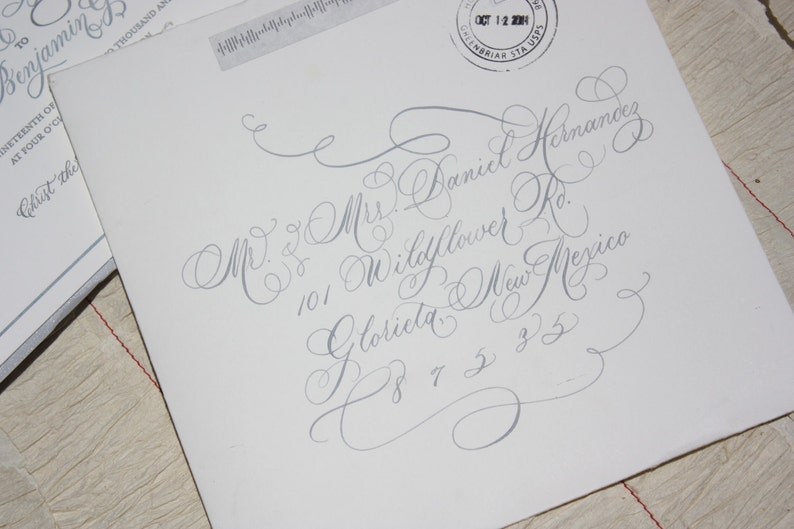 TO
Benjamin G
THOUSAND AN
NINETEENTH OF
AT FOUR O'CL
Christ the
OCT 12
GREENBRIAR STA USPS
Mr. & Mrs. Daniel Hernandez
101 Wildflower Rd.
Glorieta, New Mexico
87535